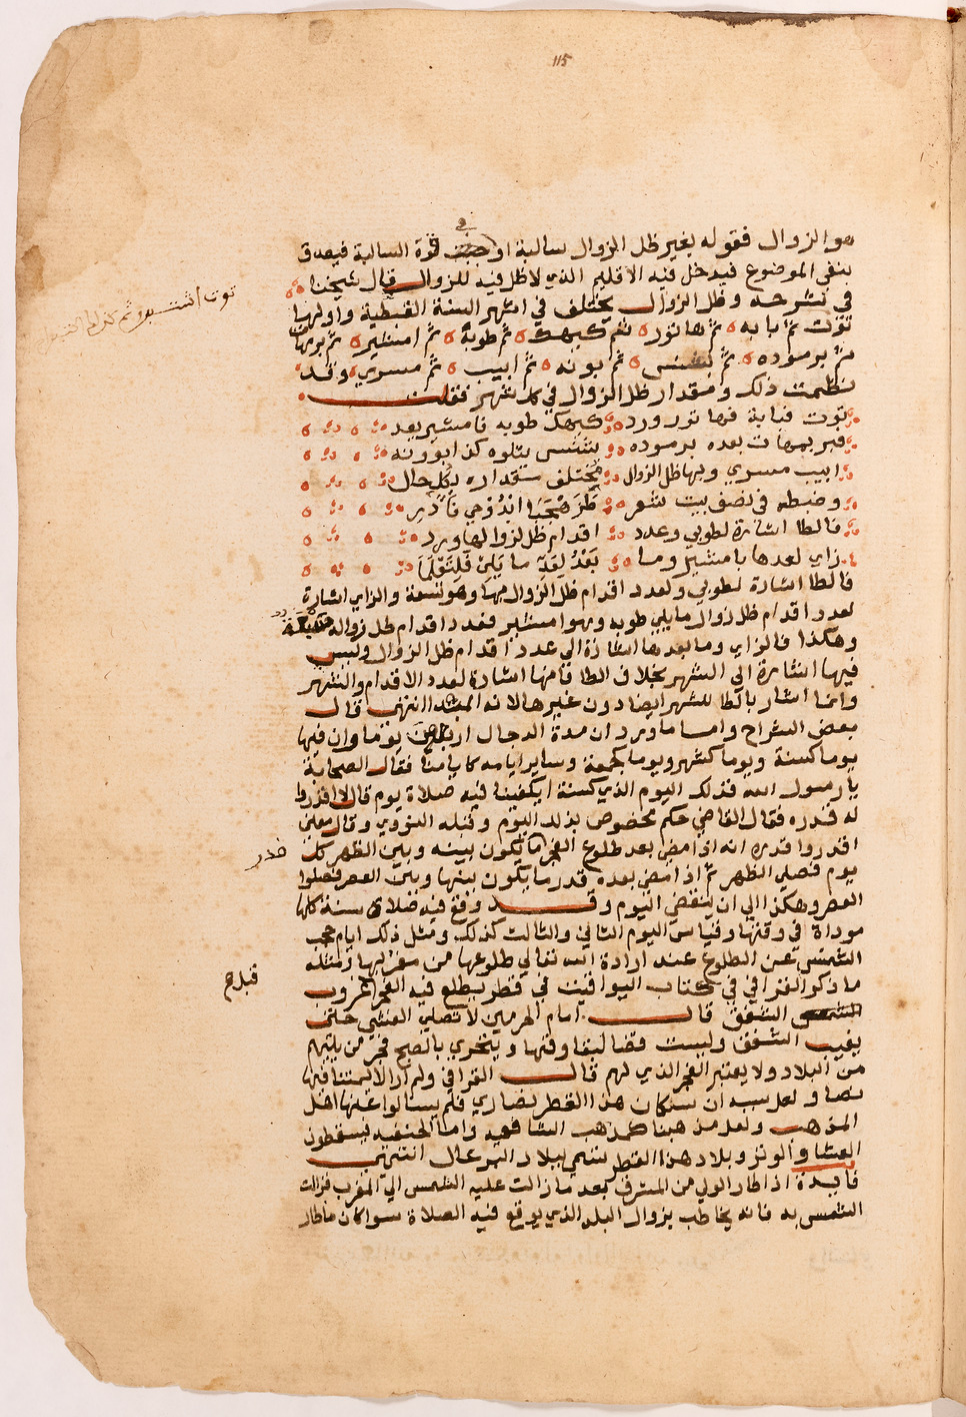 115
هو الزوال فقوله بغير ظل الزوال سالبة او في قوة السالبة فيصدق
بنفي الموضوع فيدخل فيه الاقليم الذي لا ظل فيه للزوال قال شيخنا
في شرحه وظل الزوال يختلف في اشهر السنة القبطية واولها
توت ثم بابه ثم هاتور ثم كيهك ثم طوبة ثم امشير ثم برمهات
ثم برموده ثم بشنس ثم بونه ثم ابيب ثم مسري وقد
نظمت ذلك ومقدار ظل الزوال في كل شهر فقلت
توت فبابة فهاتور ورد كيهك طوبه فامشير يعد
فبرمهات بعده برموده بشنس يتلوه كذا بوونه
ابيب مسري وبها ظل الزوال مختلف مقداره بكل حال
وضبطه في نصف بيت شعر
فالطا اشارة لطوبي وعدد اقدام ظل لزوالها ورد
زاي لعدها بامشير وما بعد لعد ما يلي
فالطا اشارة لطوبي ولعدد اقدام ظل الزوال فيها وهو تسعة والزاي اشارة
لعدد اقدام ظل زوال ما يلي طوبه وهو امشير فعدد اقدام ظل زواله سبعة
وهكذا فالزاي وما بعدها اشارة الي عدد اقدام ظل الزوال وليس
فيها اشارة الي الشهر بخلاف الطا فانها اشارة لعدد الاقدام والشهر
وانما اشار بالطا للشهر ايضا دون غيرها لانه المبتدا انتهى قال
بعض الشراح واما ما ورد ان مدة الدجال اربعين يوما وان فيها
يوما كسنة ويوما كشهر ويوما كجمعة وساير ايامه كايامنا فقال الصحابة
يا رسول الله فذلك اليوم الذي كسنة ايكفينا فيه صلاة يوم قال لا اقدروا
له قدره فقال القاضي حكم مخصوص بذلك اليوم وقبله النووي وقال معنى
اقدروا قدره انه اذا مضي بعد طلوع الفجر ما يكون بينه وبين الظهر كل
يوم فصلي الظهر ثم اذا مضي بعده قدر ما يكون بينها وبين العصر فصلوا
العصر وهكذا الي ان ينقضي اليوم وقد وقع فيه صلاة سنة كلها
موداة في وقتها وقياس اليوم الثاني والثالث كذلك ومثل ذلك ايام حجب
الشمس عن الطلوع عند ارادة الله تعالي طلوعها من مغربها ومثله
ما ذكر القرافي في كتاب اليواقيت في قطر يطلع فيه الفجر قبل غروب
الشفق قال امام الحرمين لا تصلي العشي حتى
يغيب الشفق وليست قضا لبقا وقتها ويتحري بالصبح فجر من يليهم
من البلاد ولا يعتبر الفجر الذي لهم قال القرافي ولم ار لايمتنا فيها
نصا ولعل سببه ان سكان هذا القطر نصاري فلم يسالوا عنها اهل
المذهب ولعل مذهبنا كمذهب الشافعيه واما الحنفيه فيسقطون
العشا والوتر وبلاد هذا القطر تسمي ببلاد البرغال انتهى
فايدة اذا طار الولي من المشرق بعد ما زالت عليه الشمس الي المغرب فزالت
الشمس به فانه يخاطب بزوال البلد الذي يوقع فيه الصلاة سوا كان ما طار
قدر